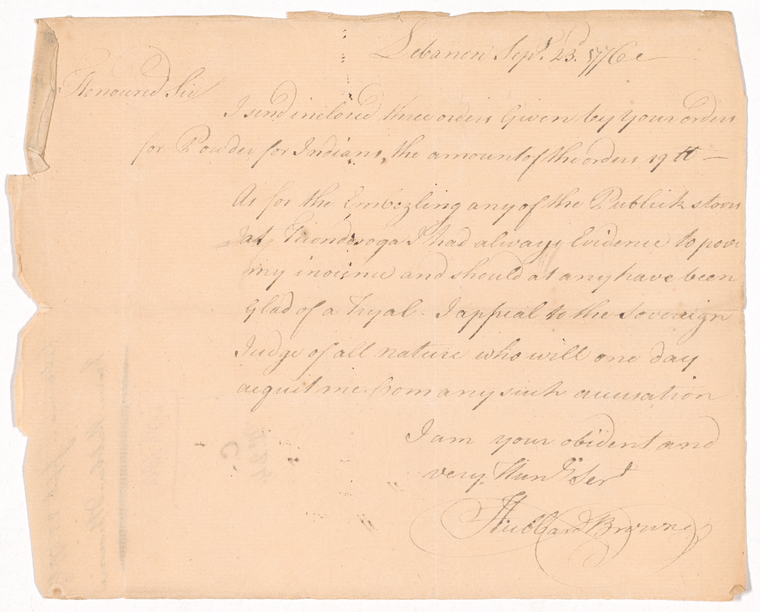 Lebanon Sepr. 23d. 1776
Honourd Sir
I send inclosd three orders Given by your orders
for Powder for Indians, the amount of the orders 19 lb —
As for the Embezling any of the Publick stores
at Tionderoga I had always Evidence to
my inocence and should at any have been
Glad of a Tryal. I appeal to the Sovereign
Judge of all nature who will one day
acquit me from any such accusation
I am your obident and
very Humle Sert
Hubbard Brown